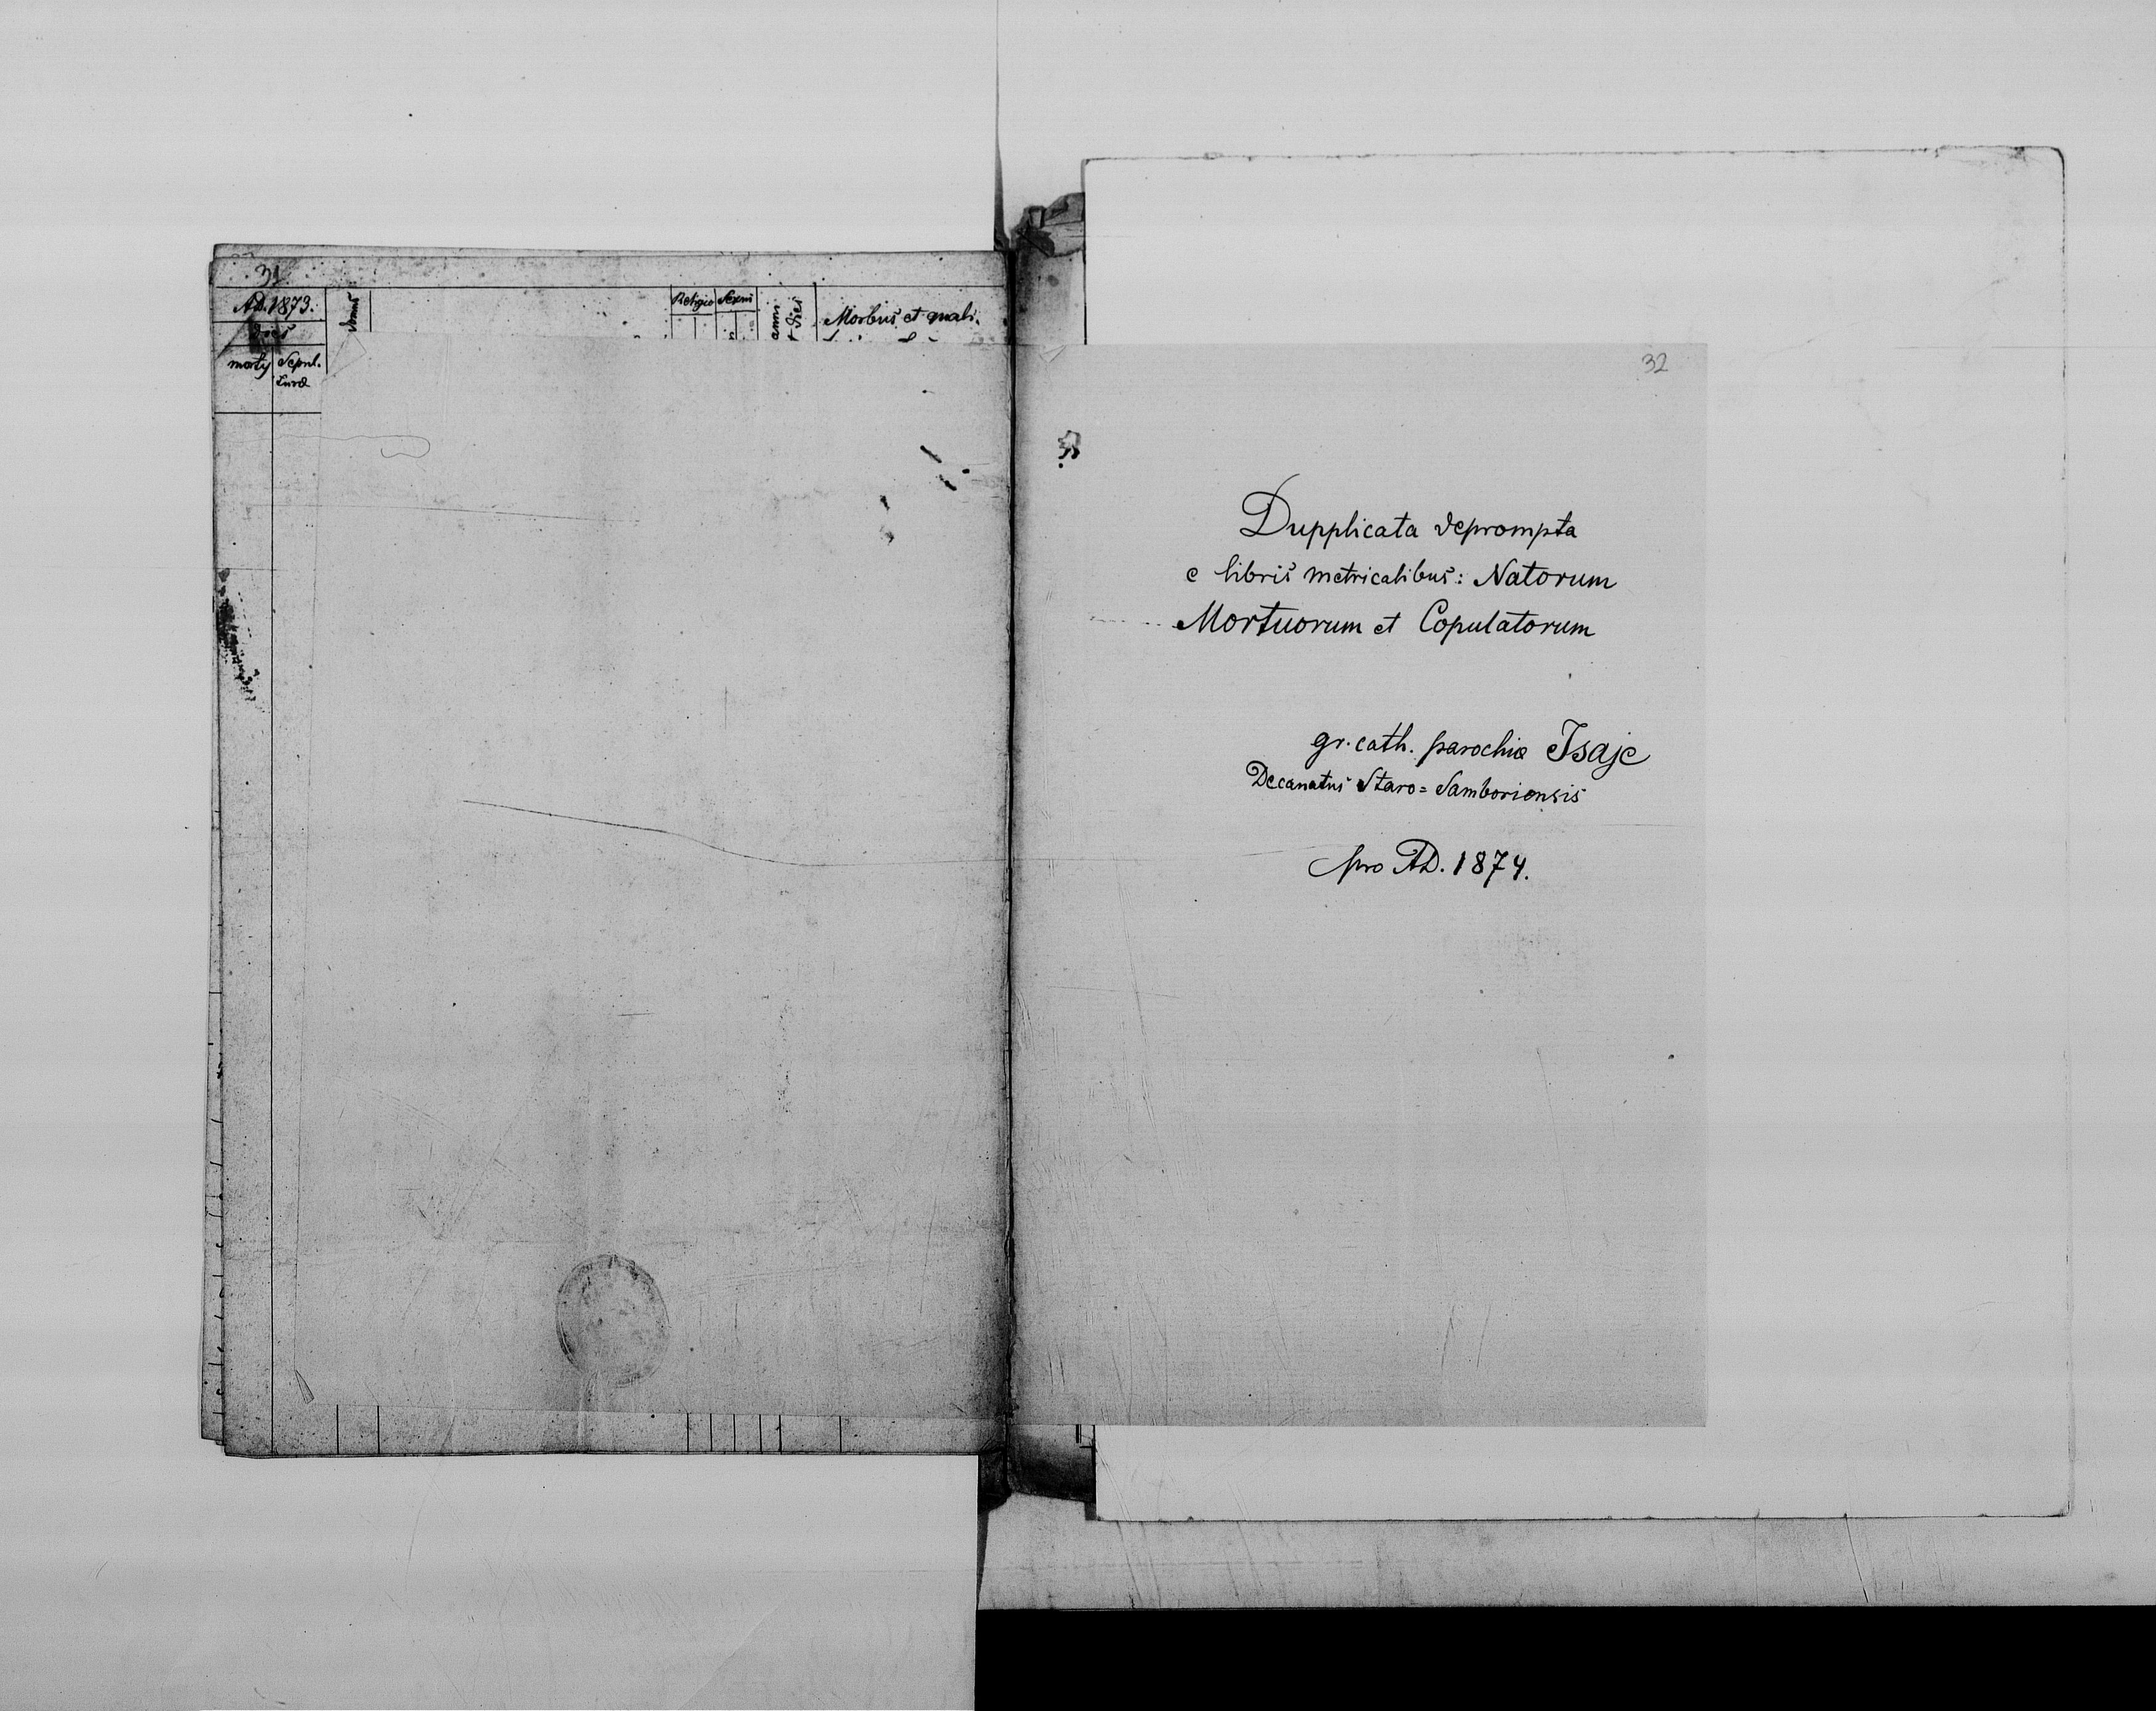 31
AD. 1873.
dies
mortis Sepul.
turæ
domus
Religio Sexus
anni
et dies
Morbus et quali.
32
Dupplicata deprompta
e libris metricalibus: Natorum
Mortuorum et Copulatorum
gr. cath. parochiæ Isaje
Decanatus Staro= Samboriensis
pro AD. 1874.